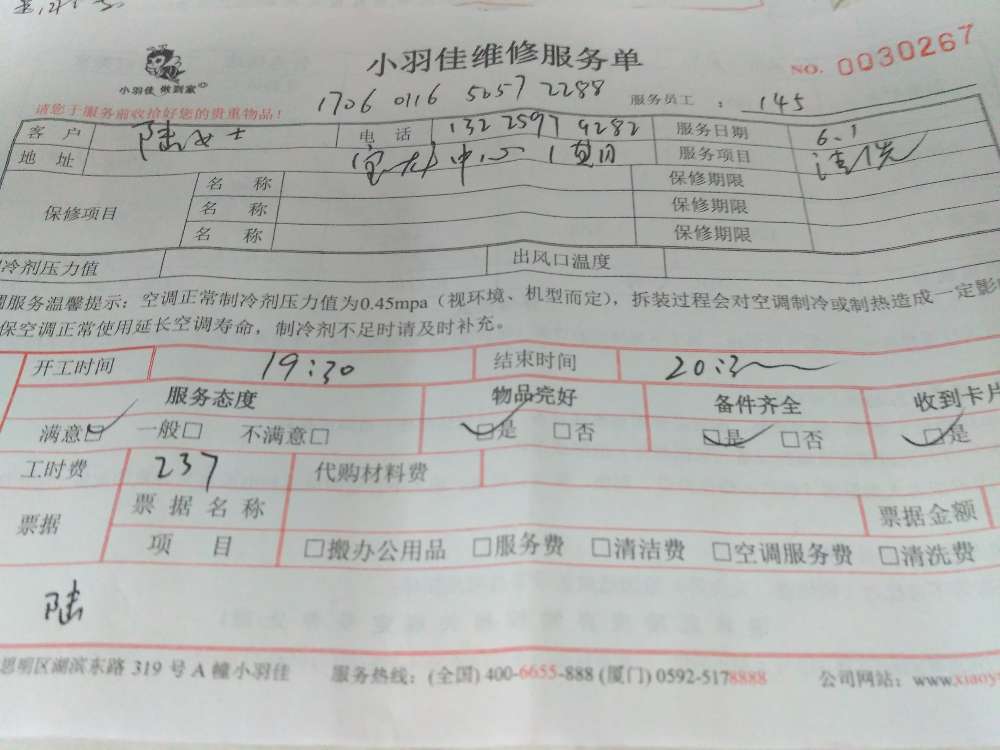 小羽佳 做到家
小羽佳维修服务单
NO. 0030267
请您于服务前收拾好您的贵重物品!
1706 0116 5057 2288
服务员工 : 145
客 户 陆女士 电 话 132 2597 9282 服务日期 6.1
地 址 中心 服务项目 清洗
保修项目
名 称 保修期限
名 称 保修期限
名 称 保修期限
冷剂压力值 出风口温度
服务温馨提示：空调正常制冷剂压力值为0.45mpa（视环境、机型而定），拆装过程会对空调制冷或制热造成一定影
保空调正常使用延长空调寿命，制冷剂不足时请及时补充。
开工时间 19:30 结束时间
服务态度 物品完好 备件齐全 收到卡片
满意□ 一般□ 不满意□ □是 □否 □是 □否 □是
工时费 237 代购材料费
票据 票 据 名 称 票据金额
项 目 □搬办公用品 □服务费 □清洁费 □空调服务费 □清洗费
陆
思明区湖滨东路 319 号 A 幢小羽佳 服务热线：(全国) 400-6655-888 (厦门) 0592-5178888 公司网站：www.xiaoy